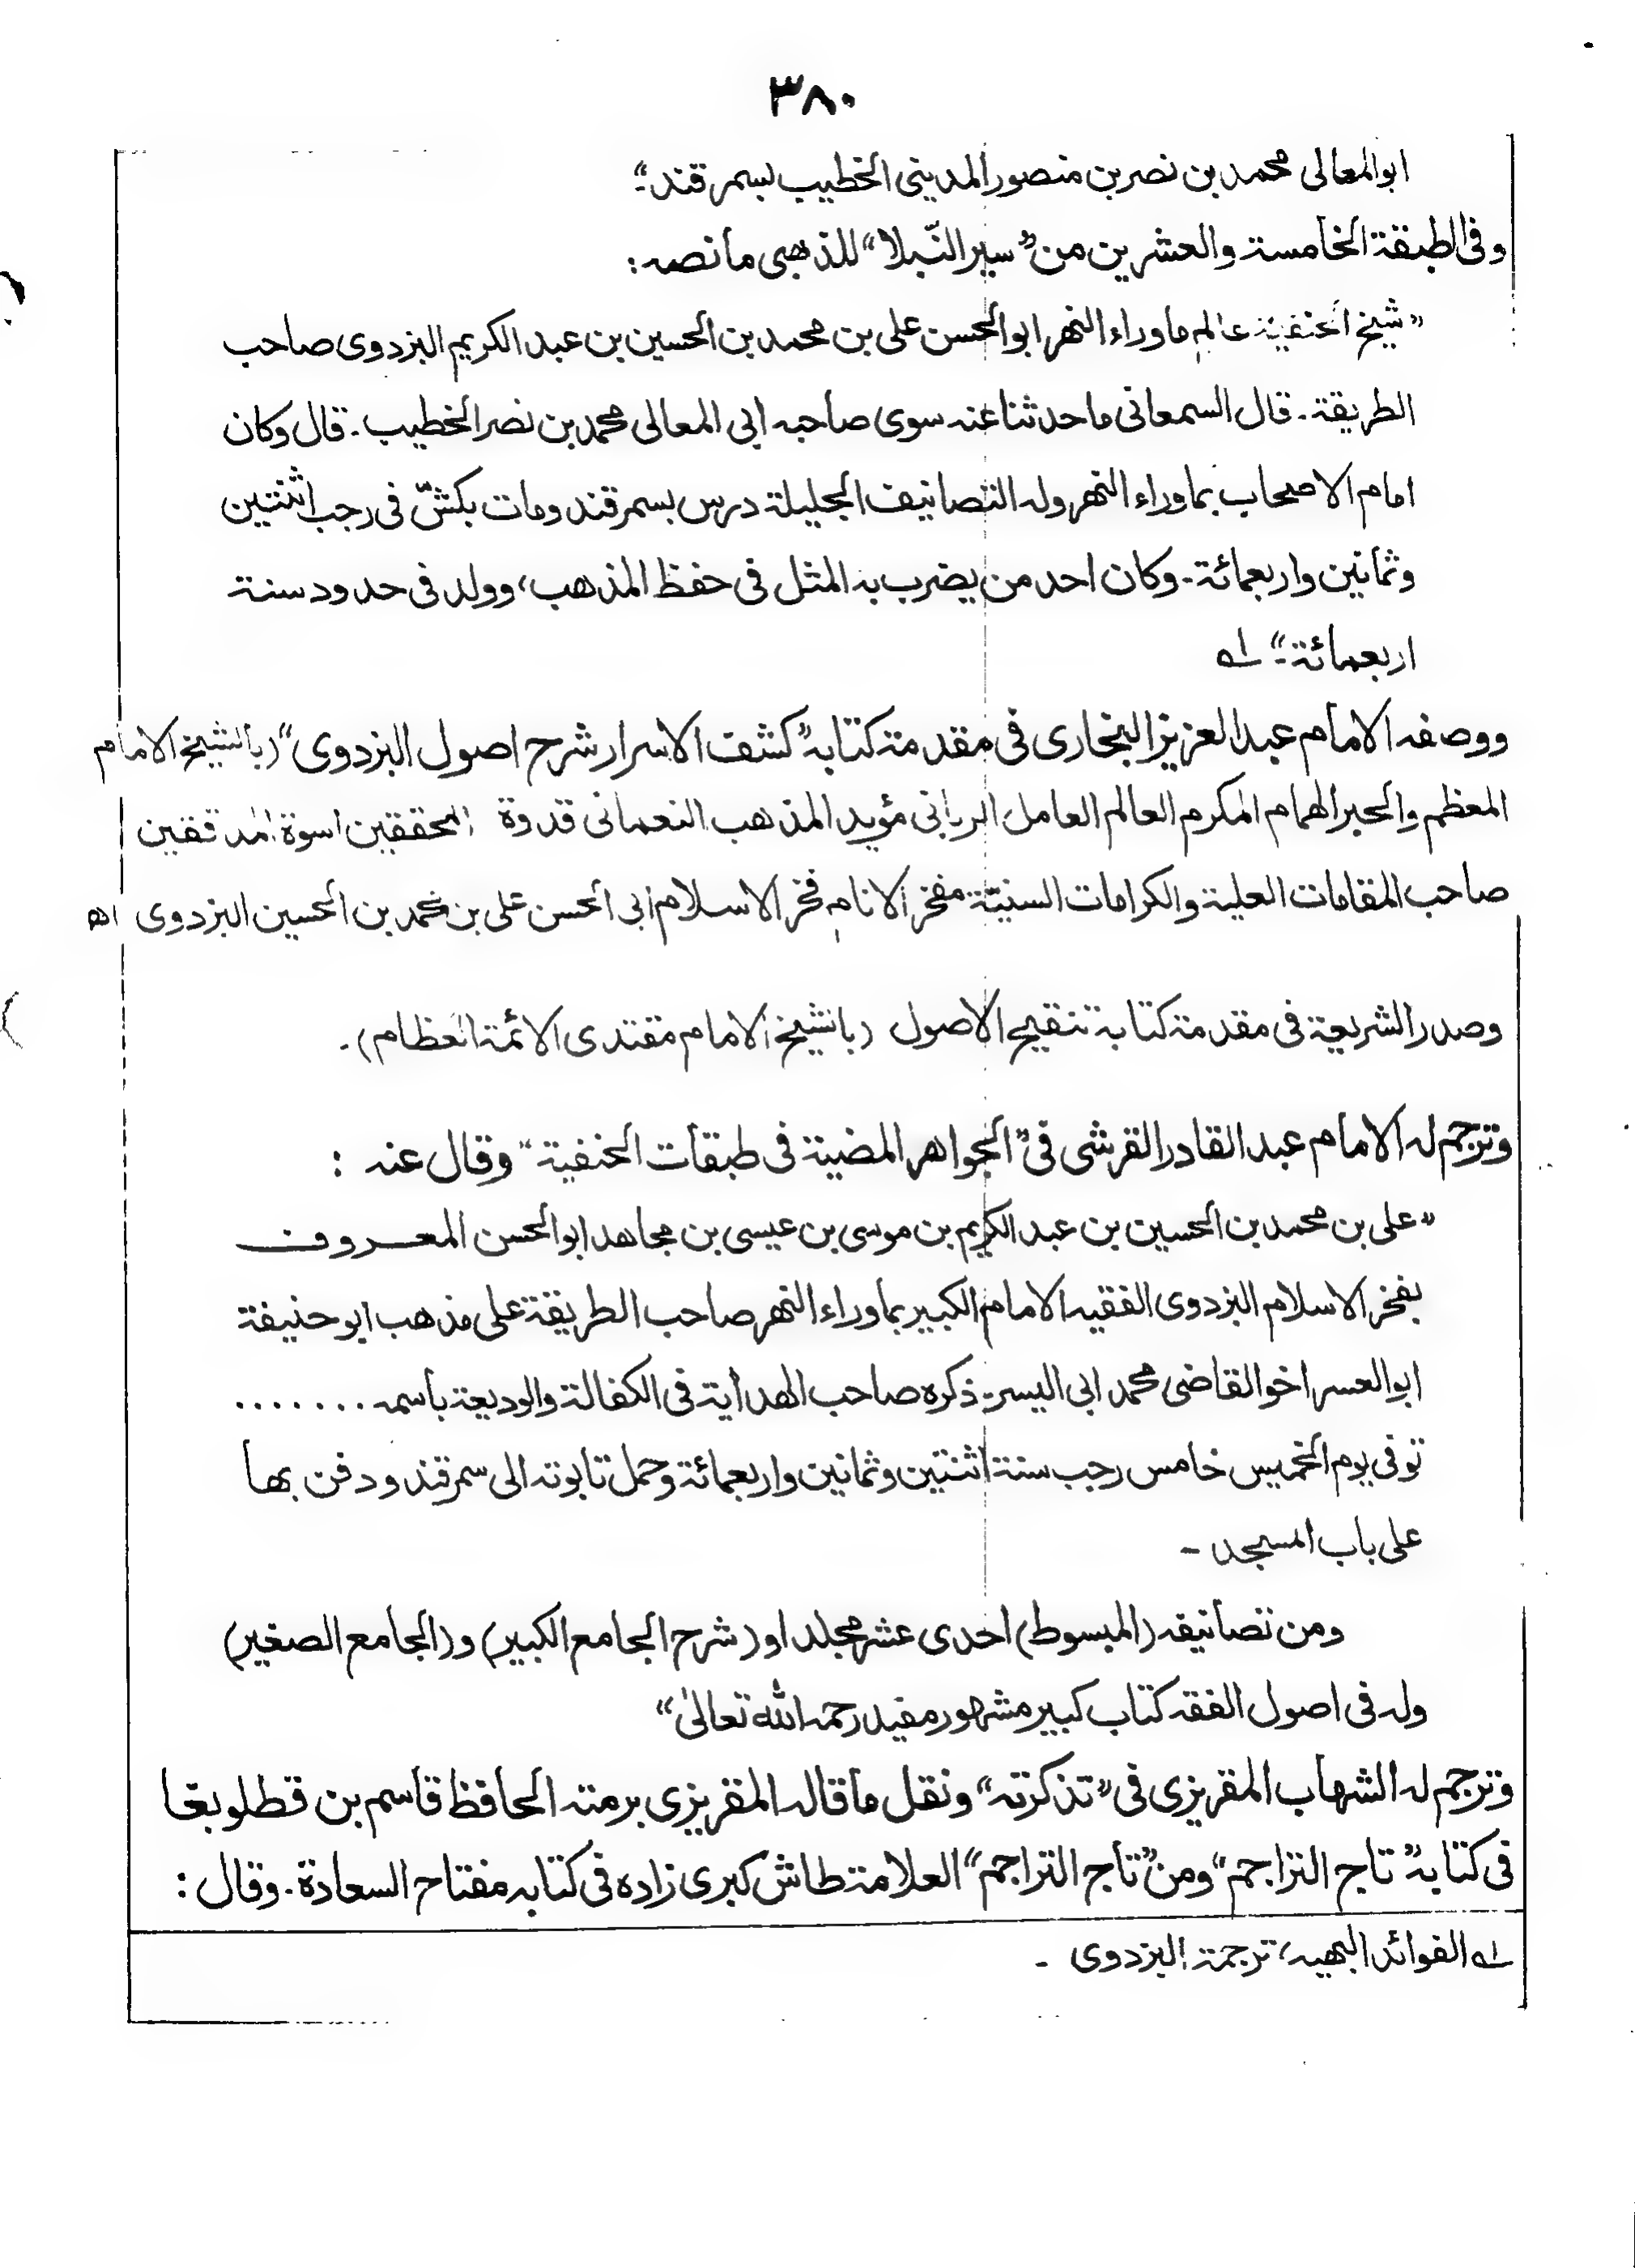 ٣٨٠
ابوالمعالى محمد بن نصر بن منصور المدينى الخطيب بسمرقند۔“
وفى الطبقة الخامسة والعشرين من ”سير النّبلا“ للذهبى ما نصه :
”شيخ الحنفية عالم ما وراء النهر ابوالحسن على بن محمد بن الحسين بن عبد الكريم البزدوى صاحب
الطريقة۔ قال السمعانى ما حدثنا عنه سوى صاحبه ابى المعالى محمد بن نصر الخطيب۔ قال وكان
امام الاصحاب بما وراء النهر وله التصانيف الجليلة درس بسمرقند ومات بكشّ فى رجب اثنتين
وثمانين واربعمائة۔ وكان احد من يضرب به المثل فى حفظ المذهب، وولد فى حدود سنة
اربعمائة۔“ لـه
ووصفه الامام عبد العزيز البخارى فى مقدمة كتابه ”كشف الاسرار شرح اصول البزدوى“ (بالشيخ الامام
المعظم والحبر الهمام المكرم العالم العامل الربانى مؤيد المذهب النعمانى قدوة المحققين اسوة المدققين
صاحب المقامات العلية والكرامات السنيّة مفخر الانام فخر الاسلام ابى الحسن على بن محمد بن الحسين البزدوى اھ
وصدر الشريعة فى مقدمة كتابة تنقيح الاصول (بالشيخ الامام مقتدى الائمة العظام).
وترجم له الامام عبد القادر القرشى فى ”الجواهر المضية فى طبقات الحنفية“ وقال عنه :
”على بن محمد بن الحسين بن عبد الكريم بن موسى بن عيسى بن مجاهد ابوالحسن المعروف
بفخر الاسلام البزدوى الفقيه الامام الكبير بما وراء النهر صاحب الطريقة على مذهب ابو حنيفة
ابوالعسر اخو القاضى محمد ابى اليسر۔ ذكره صاحب الهداية فى الكفالة والوديعة باسمه ........
توفى يوم الخميس خامس رجب سنة اثنتين وثمانين واربعمائة وحمل تابوته الى سمرقند ودفن بها
على باب المسجد ۔
ومن تصانيفه (المبسوط) احدى عشر مجلد او (شرح الجامع الكبير) و (الجامع الصغير)
وله فى اصول الفقه كتاب كبير مشهور مفيد رحمه الله تعالىٰ“
وترجم له الشهاب المقريزى فى ”تذكرته“ ونقل ما قاله المقريزى برمته الحافظ قاسم بن قطلوبغا
فى كتابه ”تاج التراجم“ ومن ”تاج التراجم“ العلامة طاش كبرى زاده فى كتابه مفتاح السعادة۔ وقال :
لـه الفوائد البهيه، ترجمة البزدوى ۔